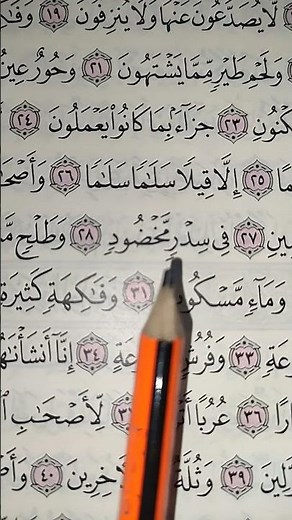 لَّا يُصَدَّعُونَ عَنْهَا وَلَا يُنزِفُونَ ١٩ وَفَـٰ
وَلَحْمِ طَيْرٍ مِّمَّا يَشْتَهُونَ ٢١ وَحُورٌ عِينٌ
كْنُونِ ٢٣ جَزَآءَۢ بِمَا كَانُوا۟ يَعْمَلُونَ ٢٤
مًا ٢٥ إِلَّا قِيلًا سَلَـٰمًا سَلَـٰمًا ٢٦ وَأَصْحَـٰ
مِينِ ٢٧ فِى سِدْرٍ مَّخْضُودٍ ٢٨ وَطَلْحٍ مَّ
وَمَآءٍ مَّسْكُو ٣١ وَفَـٰكِهَةٍ كَثِيرَةٍ
عَةٍ ٣٣ وَفُرُشٍ عَةٍ ٣٤ إِنَّآ أَنشَأْنَـٰهُ
ارًا ٣٦ عُرُبًا أَ ٣٧ لِّأَصْحَـٰبِ ٱ
لِينَ ٣٩ وَثُلَّةٌ لْـَٔاخِرِينَ ٤٠ وَأَصْ